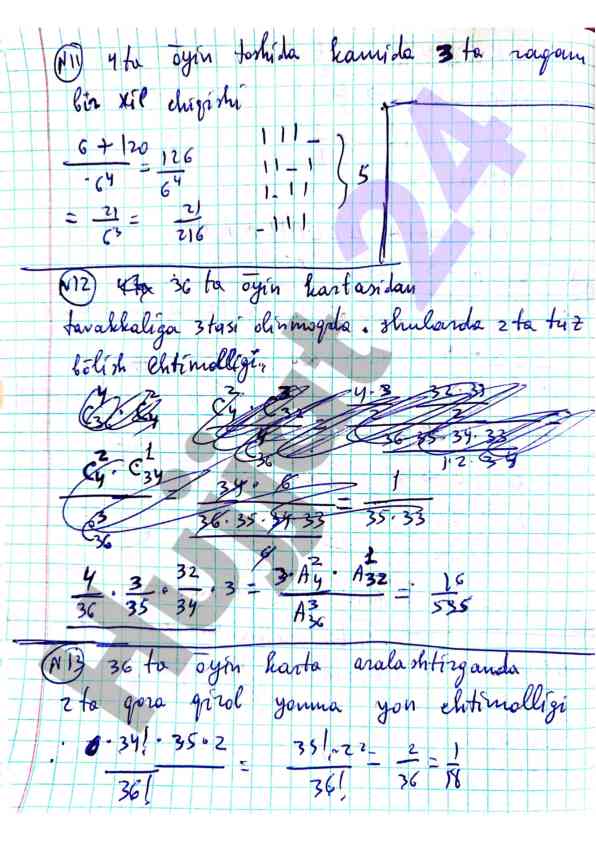 N11 4 ta ōyin toshida kamida 3 ta raqam
bir xil chiqishi
6 + 120 / 6⁴ = 126 / 6⁴
= 21 / 6³ = 21 / 216
1 1 1 _
1 1 _ 1
1 _ 1 1
_ 1 1 1
} 5
N12 36 ta ōyin kartasidan
tavakkaliga 3 tasi olinmoqda. shularda 2 ta tuz
bōlish ehtimolligi.
C₄² · C₃₄¹ / C₃₆³
34 · 6 / 36 · 35 · 34 · 33 = 1 / 35 · 33
4/36 · 3/35 · 32/34 · 3 = 3 · A₄² · A₃₂¹ / A₃₆³ = 16 / 595
N13 36 ta ōyin karta aralashtirganda
2 ta qora qirol yonma yon ehtimolligi
34! · 35 · 2 / 36! = 35! · 2 / 36! = 2 / 36 = 1 / 18
Hujjat 24